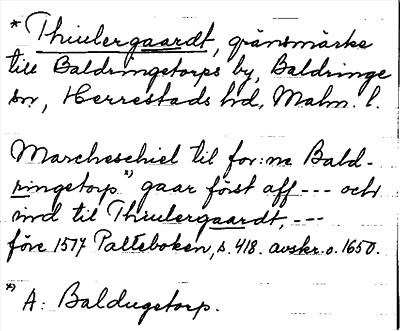 * Thiulergaardt, gränsmärke
till Baldringetorps by, Baldringe
sn, Herrestads hd, Malm. l.
Marcheschiel til for:ne Bald-
ringetorp *) gaar först aff --- och
ind til Thiulergaardt, ---
före 1517 Palteboken, s. 418. avskr. o. 1650.
*) A: Baldugetorp.